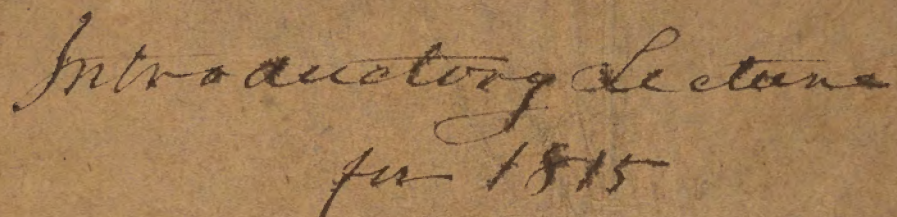 Introductory Lecture
for 1815